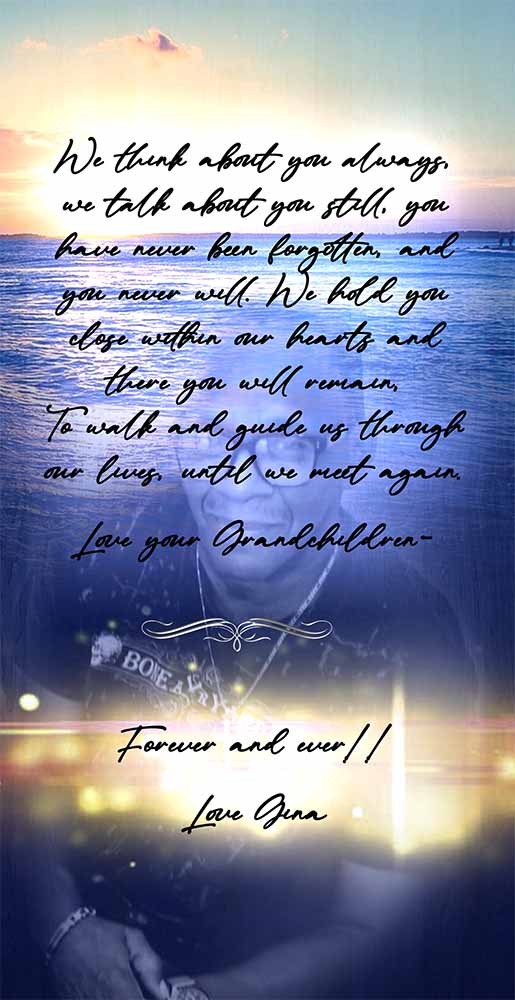 We think about you always,
we talk about you still, you
have never been forgotten, and
you never will. We hold you
close within our hearts and
there you will remain,
To walk and guide us through
our lives, until we meet again.
Love your Grandchildren-
BONE
Forever and ever!!
Love Gina